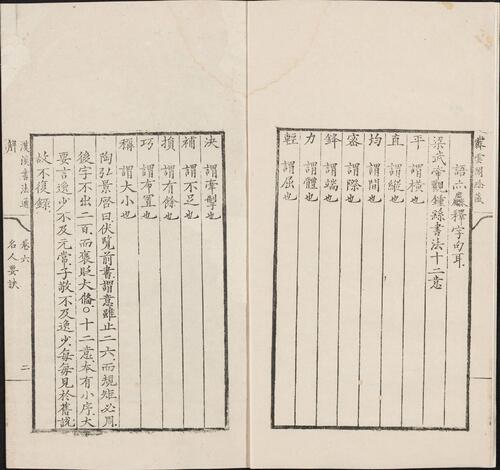 雲閣藏
語亦麤釋字句耳
梁武帝觀鍾繇書法十二意
平 謂橫也
直 謂縱也
均 謂間也
密 謂際也
鋒 謂端也
力 謂體也
輕 謂屈也
決 謂牽掣也
補 謂不足也
損 謂有餘也
巧 謂布置也
稱 謂大小也
陶弘景啓曰伏覽前書謂意雖止二六而規矩必周
後字不出二百而褒貶大備○十二意本有小序大
要言逸少不及元常子敬不及逸少每每見於舊說
故不復錄
漢溪書法通解 卷六 名人要訣 二